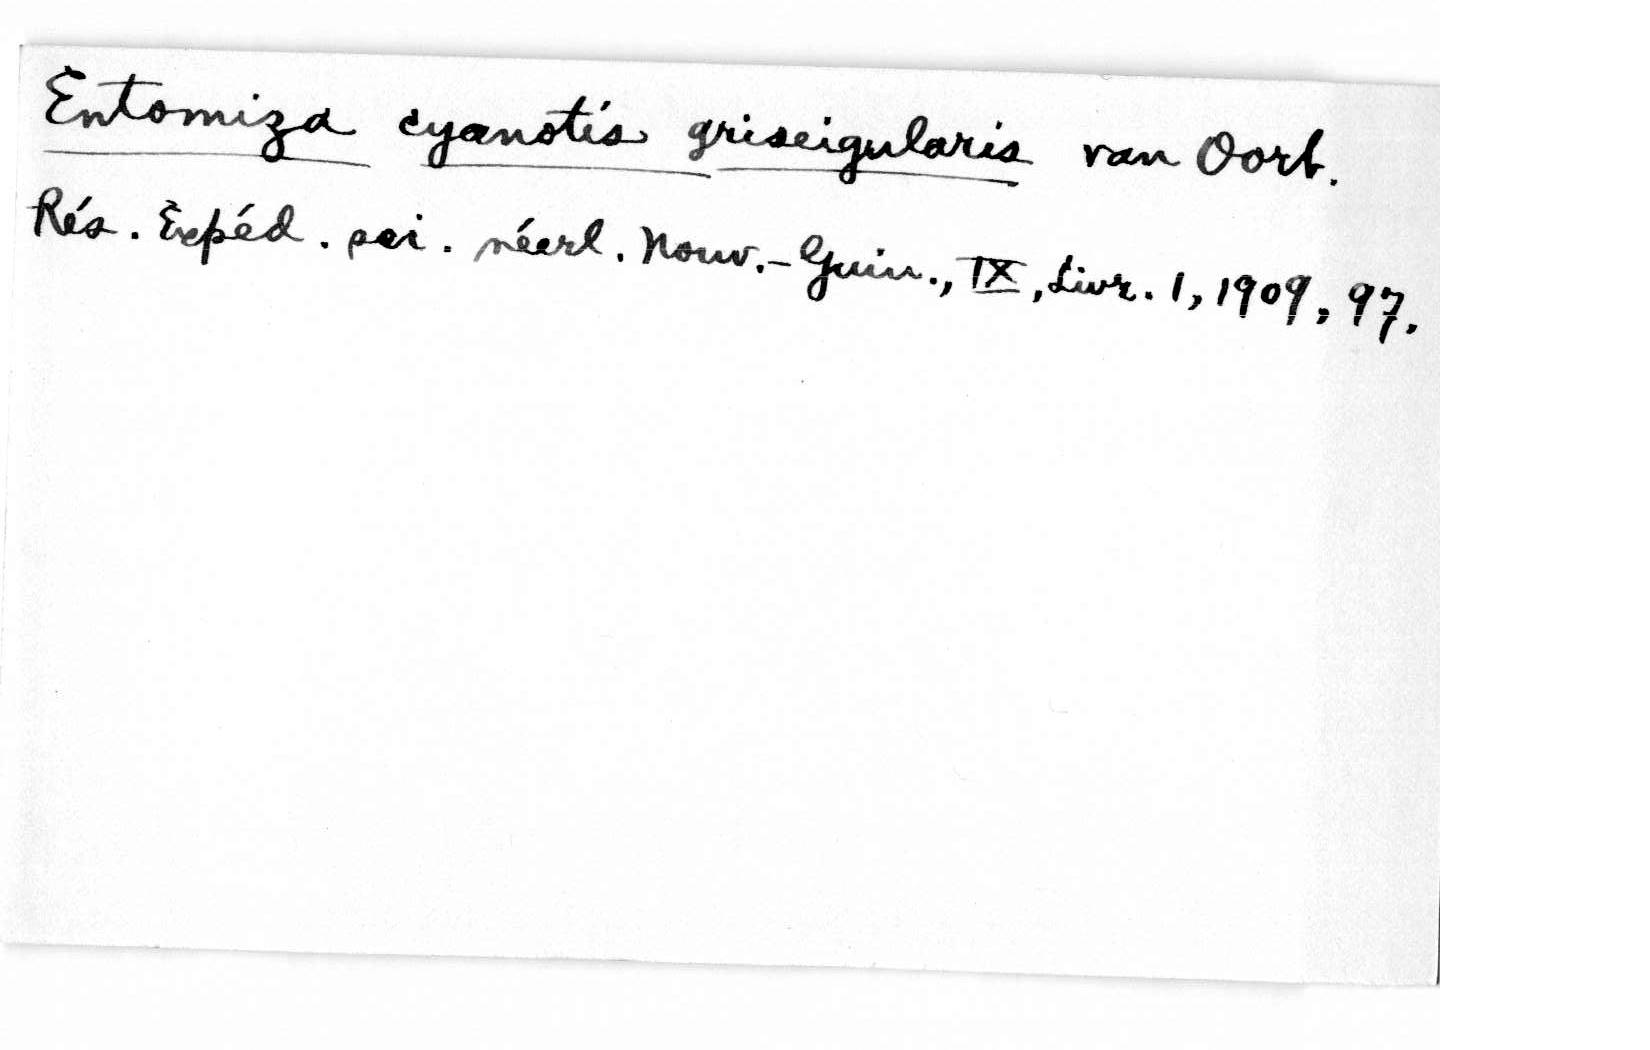 Entomiza cyanotis griseigularis van Oort.
Rés. Expéd. sci. néerl. Nouv.-Guin., IX, Livr. 1, 1909, 97.